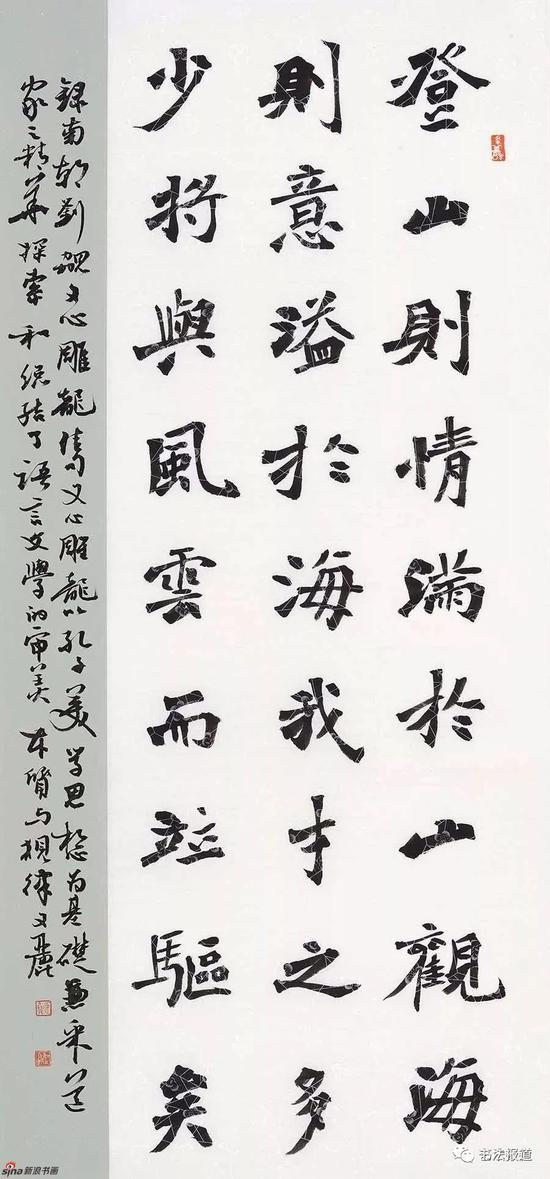 登山則情滿於山觀海
則意溢於海我才之多
少將與風雲而竝驅矣
録南朝劉勰文心雕龍隽文心雕龍以孔子美學思想为基礎兼采道
家之精華探索和总结了語言文學的审美本質与規律文麗
sina新浪书画
书法报道